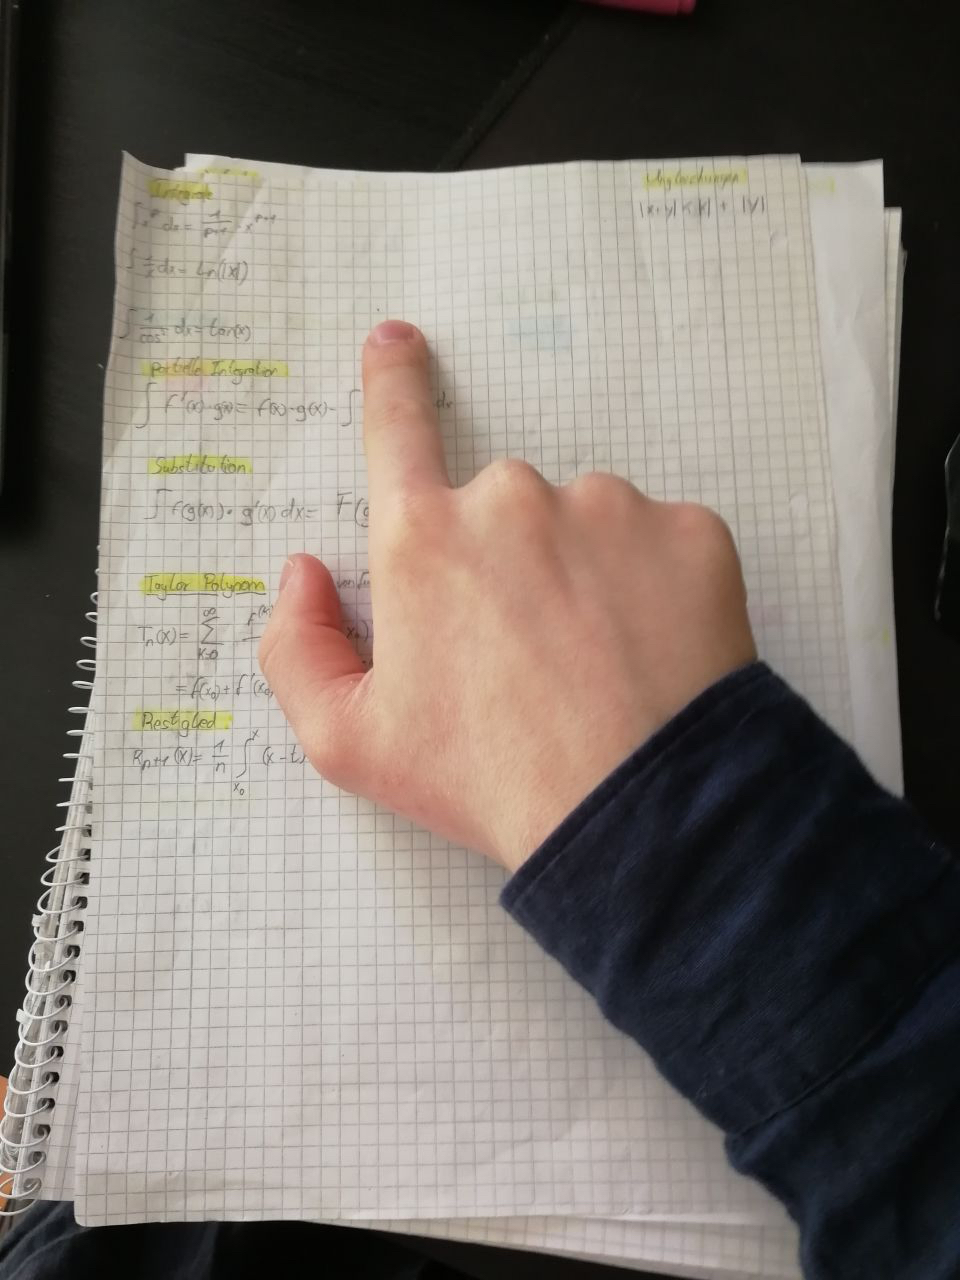 Integrale
∫ x^p dx = 1/(p+1) · x^(p+1)
∫ 1/x dx = ln(|x|)
∫ 1/cos² dx = tan(x)
Partielle Integration
∫ f'(x) · g(x) = f(x) · g(x) - ∫ dx
Substitution
∫ f(g(x)) · g'(x) dx = F(g
Taylor Polynom von
T_n(x) = ∑_{k=0}^{∞} f^(k) x_0)
= f(x_0) + f'(x_0
Restglied:
R_{n+1}(x) = 1/n ∫_{x_0}^{x} (x-t)
Ungleichungen
|x+y| < |x| + |y|